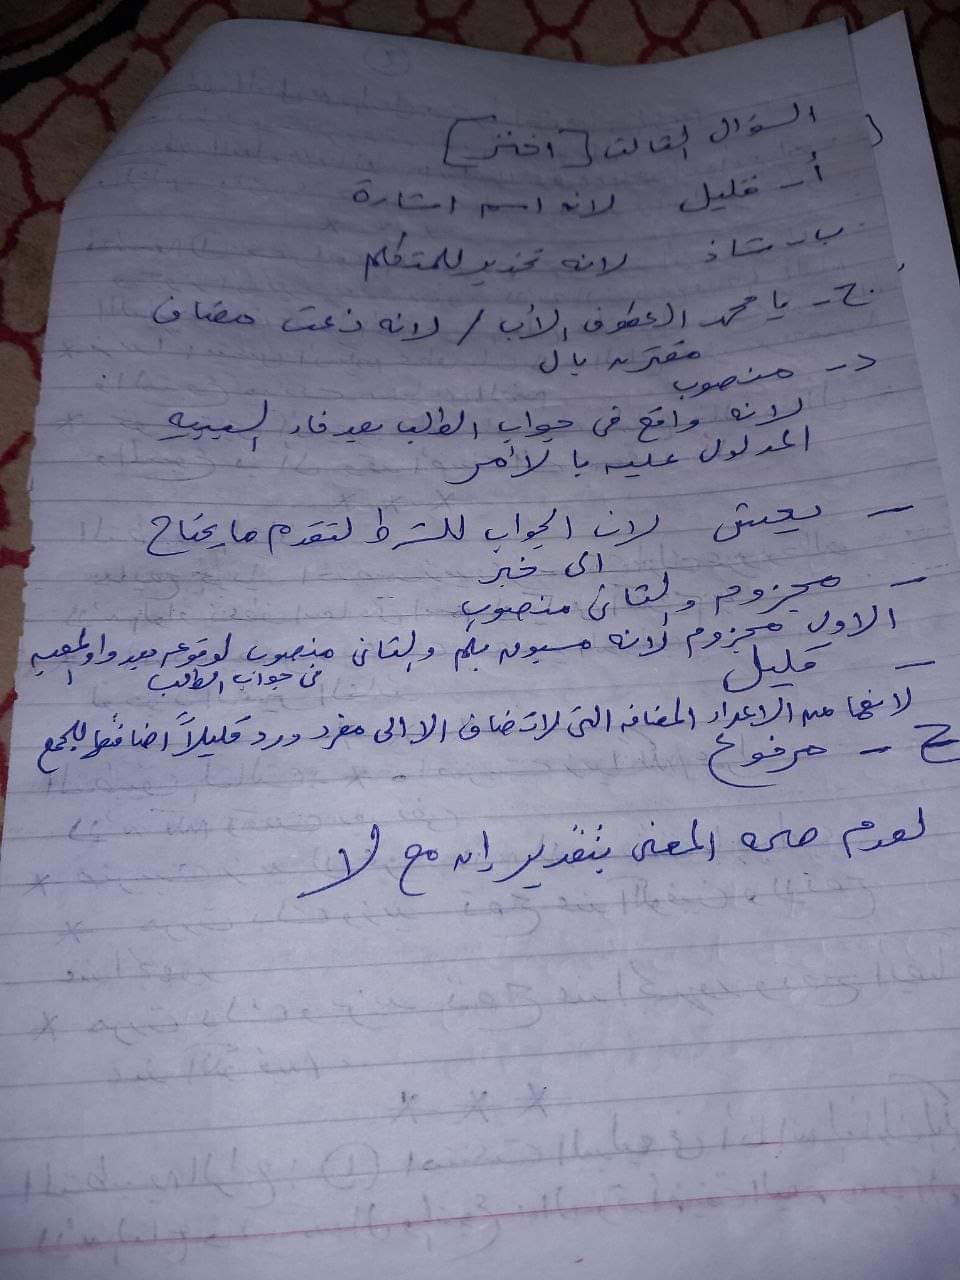 السؤال الثالث [اختر]
أ - قليل لانه اسم اشارة
ب - شاذ لانه تحذير للمتكلم
ج - يا محمد العطوف الأب / لانه نعت مضاف
مقترن بال
د - منصوب
لانه واقع فى جواب الطلب بعد فاء السببيه
المدلول عليه بالأمر
- يعش لان الجواب للشرط لتقدم ما يحتاج
الى خبر
- مجزوم والثانى منصوب
الاول مجزوم لأنه مسبوق بلم والثانى منصوب لوقوعه بعد واو المعيه
فى جواب الطلب
- قليل
لانها من الاعداد المضافه التى لا تضاف الا الى مفرد ورد قليلاً اضافتها للجمع
ح - مرفوع
لعدم صحه المعنى بتقدير إن مع لا